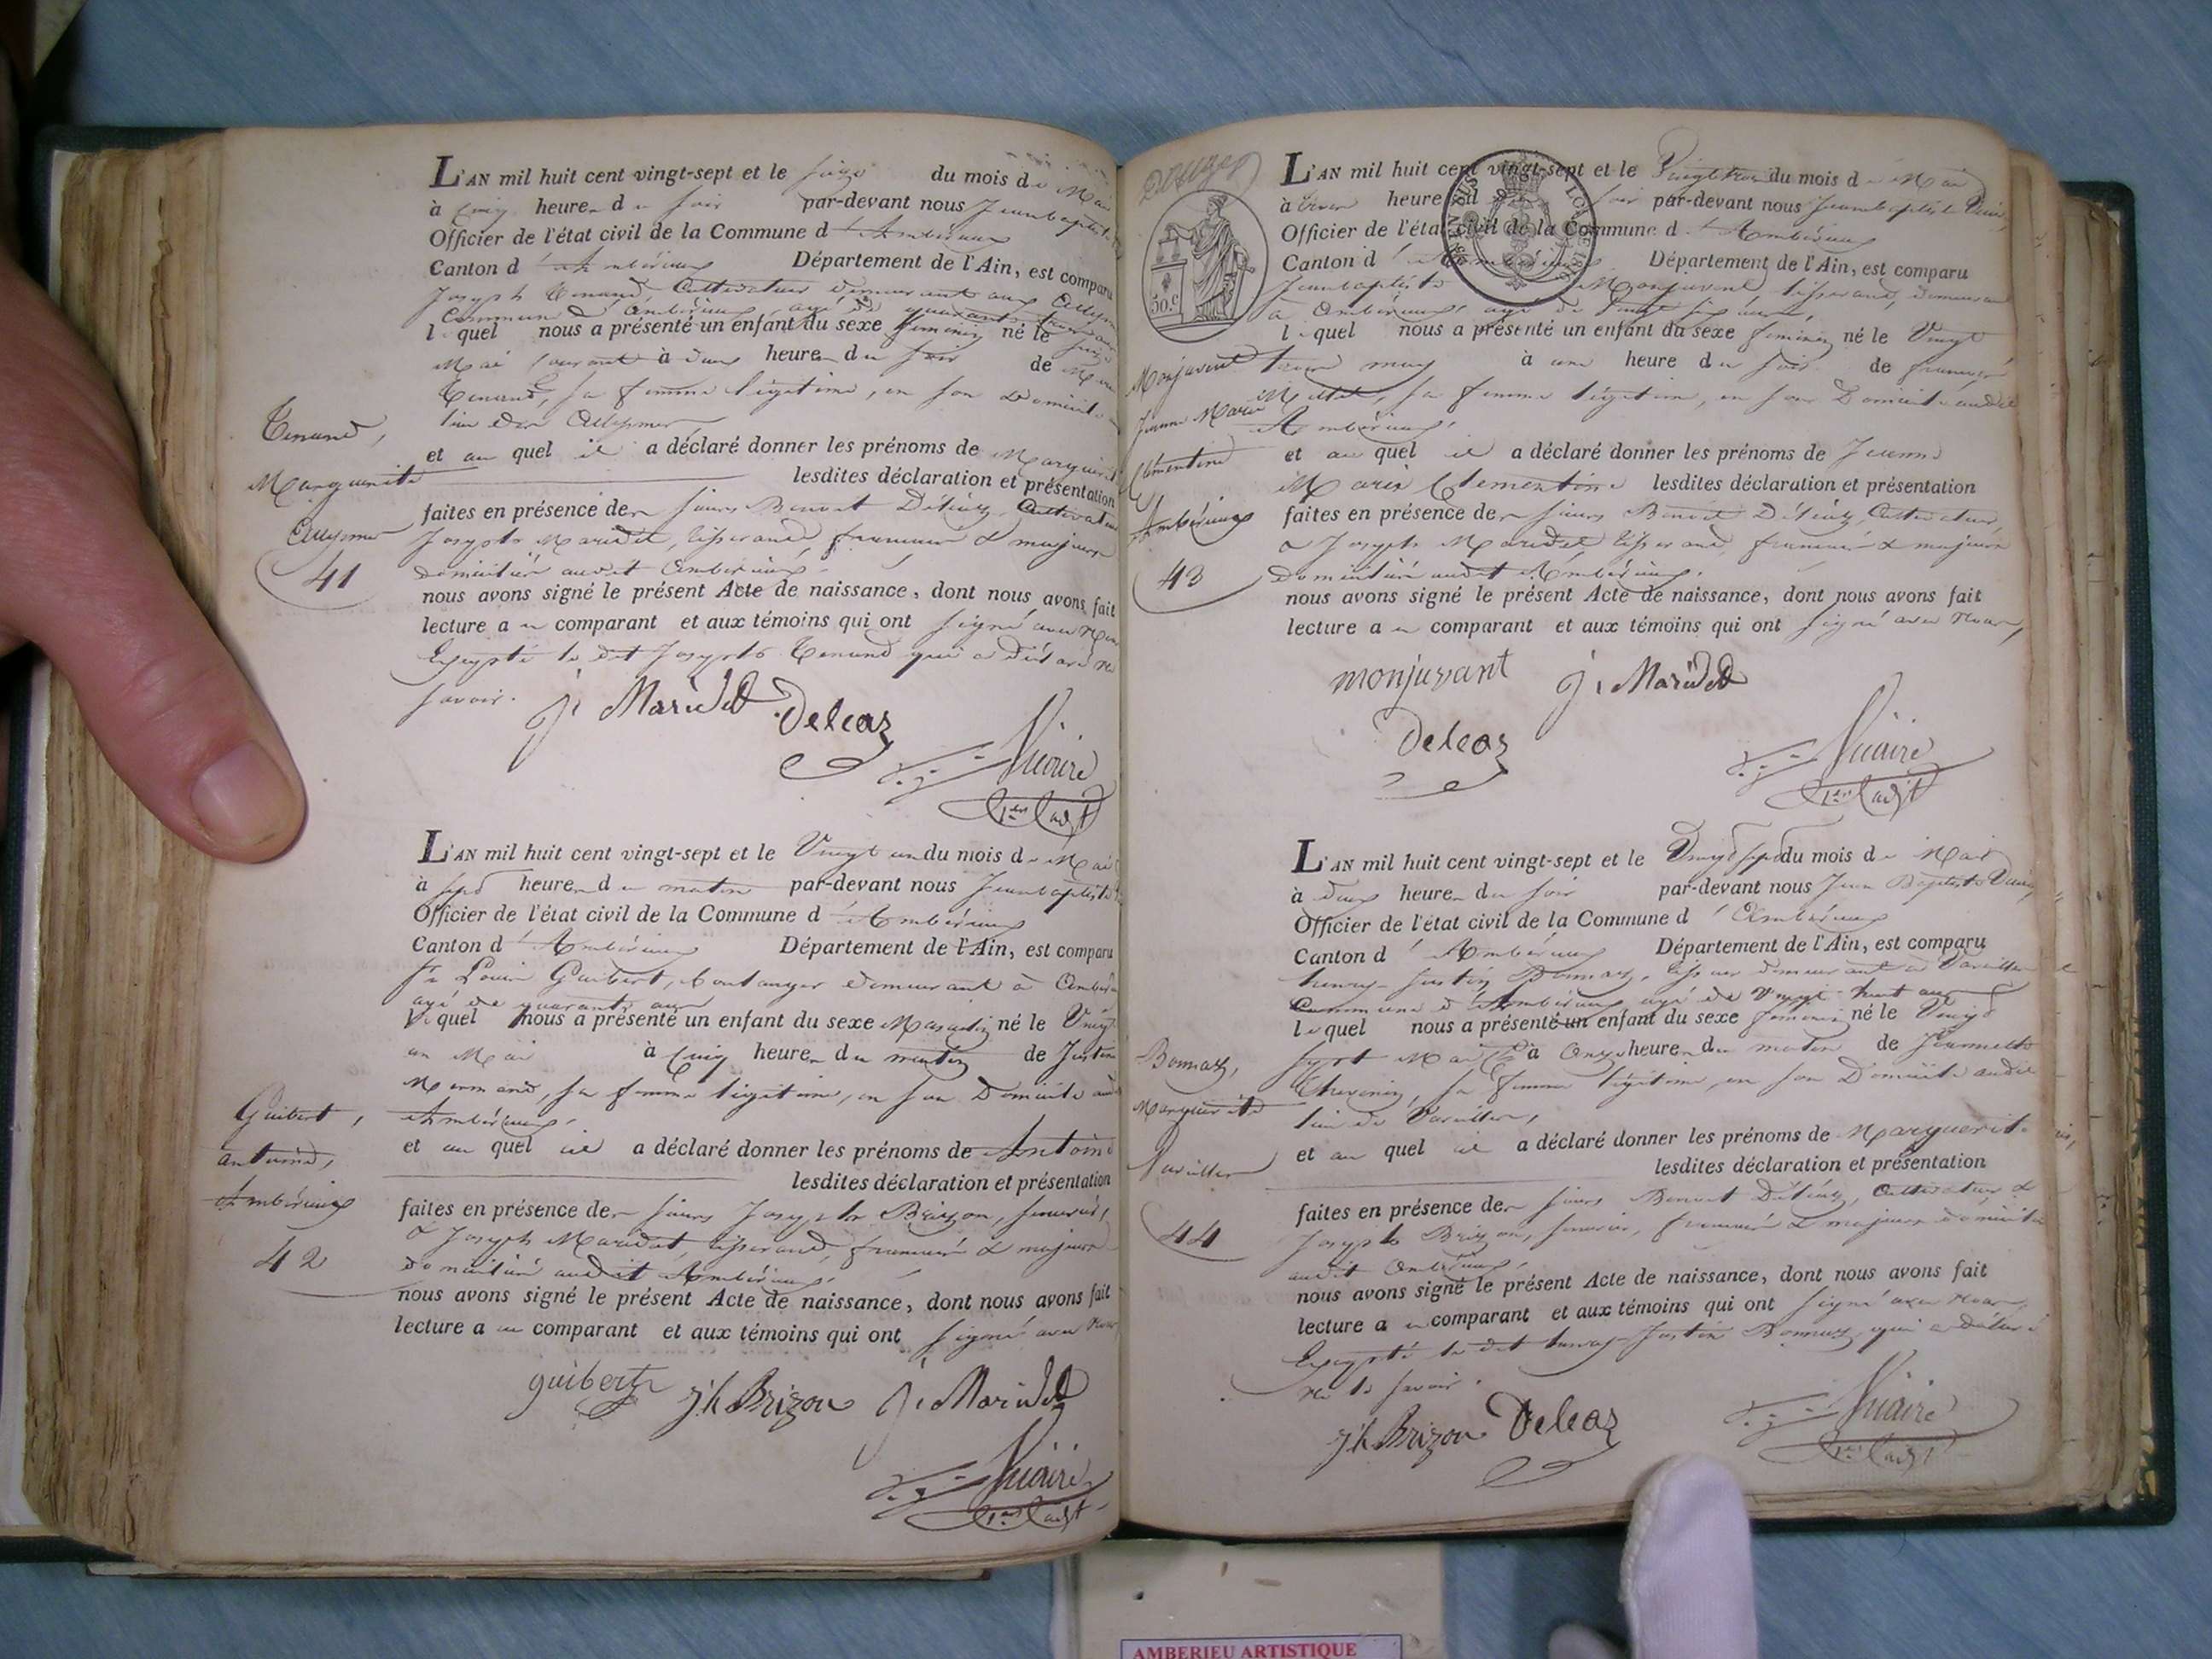 L'AN mil huit cent vingt-sept et le seize du mois de Mai
à cinq heures du soir par-devant nous Jeanbaptiste
Officier de l'état civil de la Commune d'Ambérieux
Canton d'Ambérieux Département de l'Ain, est comparu
Joseph Tenand, Cultivateur demeurant aux
Commune d'Ambérieux, agé de quarante
lequel nous a présenté un enfant du sexe féminin né le seize
Mai courant à deux heures du soir de
Tenand, sa femme légitime, en son Domicile
lieu des
Tenand,
et auquel il a déclaré donner les prénoms de Marguerite
Marguerite
lesdites déclaration et présentation
faites en présence des sieurs Benoit Cultivateur
Joseph Maridet, tisserand, français & majeurs
41
domiciliés audit Ambérieux.
nous avons signé le présent Acte de naissance, dont nous avons fait
lecture au comparant et aux témoins qui ont signé avec Nous
Excepté le dit Joseph Tenand qui a déclaré ne
savoir.
J. Maridet Deleaz
Vicaire
1er Cadjt
L'AN mil huit cent vingt-sept et le Vingt un du mois de Mai
à sept heures du matin par-devant nous Jeanbaptiste
Officier de l'état civil de la Commune d'Ambérieux
Canton d'Ambérieux Département de l'Ain, est comparu
Sr Louis Guibert, boulanger demeurant à Ambérieux
agé de quarante ans
lequel nous a présenté un enfant du sexe Masculin né le Vingt
un Mai à cinq heures du matin de Justine
Mermand, sa femme légitime, en son Domicile audit
Guibert,
Ambérieux,
et auquel il a déclaré donner les prénoms de Antoine
antoine,
lesdites déclaration et présentation
Ambérieux
faites en présence des sieurs Joseph Brizon,
& Joseph Maridet, tisserand, français & majeurs
42
domiciliés audit Ambérieux.
nous avons signé le présent Acte de naissance, dont nous avons fait
lecture au comparant et aux témoins qui ont signé avec Nous
guibert jh Brizon J. Maridet
Vicaire
1er Cadjt
50 c.
L'AN mil huit cent vingt-sept et le Vingt trois du mois de Mai
à trois heures du soir par-devant nous Jeanbaptiste
Officier de l'état civil de la Commune d'Ambérieux
Canton d'Ambérieux Département de l'Ain, est comparu
Jeanbaptiste Monjuvent, tisserand, demeurant
à Ambérieux, agé de Vingt six ans,
lequel nous a présenté un enfant du sexe féminin né le Vingt
Monjuvent
trois may à une heure du soir de
Millet, sa femme légitime, en son Domicile audit
Jeanne Marie
Ambérieux,
Clementine
et auquel il a déclaré donner les prénoms de Jeanne
Marie Clementine lesdites déclaration et présentation
Ambérieux
faites en présence des sieurs Benoit Cultivateur,
& Joseph Maridet, tisserand, français & majeurs
43
Domiciliés audit Ambérieux.
nous avons signé le présent Acte de naissance, dont nous avons fait
lecture au comparant et aux témoins qui ont signé avec Nous,
monjuvant J. Maridet
Deleaz
Vicaire
1er Cadjt
L'AN mil huit cent vingt-sept et le Vingt sept du mois de Mai
à deux heures du soir par-devant nous Jean Baptiste
Officier de l'état civil de la Commune d'Ambérieux
Canton d'Ambérieux Département de l'Ain, est comparu
Justin Bonnaz, demeurant à Vareilles
Commune d'Ambérieux agé de Vingt huit ans
lequel nous a présenté un enfant du sexe féminin né le Vingt
Bonnaz,
sept Mai à onze heures du matin de Jeannette
Thevenin, sa femme légitime, en son Domicile audit
Marguerite
lieu de Vareilles,
et auquel il a déclaré donner les prénoms de Marguerite
Vareilles
lesdites déclaration et présentation
faites en présence des sieurs Benoit Cultivateur &
44
Joseph Brizon, français & majeurs domiciliés
audit Ambérieux,
nous avons signé le présent Acte de naissance, dont nous avons fait
lecture au comparant et aux témoins qui ont signé avec Nous,
Excepté le dit Justin Bonnaz qui a déclaré
ne le savoir.
jh Brizon Deleaz
Vicaire
1er Cadjt
AMBERIEU ARTISTIQUE